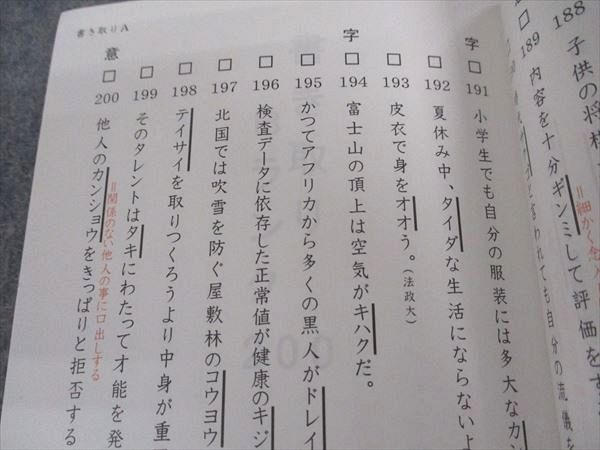 書き取りA
188 子供の将
189 内容を十分ギンミして評価を
=細かく念入
われても自分の流儀を
字 191 小学生でも自分の服装には多大なカン
192 夏休み中、タイダな生活にならないよ
193 皮衣で身をオオう。(法政大)
字 194 富士山の頂上は空気がキハクだ。
195 かつてアフリカから多くの黒人がドレイ
196 検査データに依存した正常値が健康のキジ
197 北国では吹雪を防ぐ屋敷林のコウヨウ
198 テイサイを取りつくろうより中身が重
199 そのタレントはタキにわたって才能を発
意 200 他人のカンショウをきっぱりと拒否する
=関係のない他人の事に口出しする